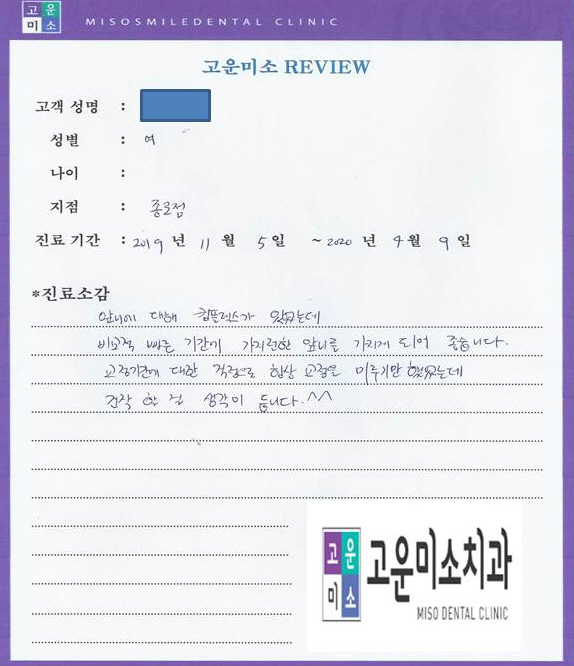 고운
미소
MISOSMILEDENTAL CLINIC
고운미소 REVIEW
고객 성명 :
성별 : 여
나이 :
지점 : 종로점
진료 기간 : 2019 년 11 월 5 일 ~ 2020 년 4 월 9 일
*진료소감
앞니에 대해 컴플렉스가 있었는데
비교적 빠른 기간에 가지런한 앞니를 가지게 되어 좋습니다.
교정기간에 대한 걱정으로 항상 교정을 미루기만 했었는데
진작 할 걸 생각이 듭니다.^^
고운
미소
고운미소치과
MISO DENTAL CLINIC